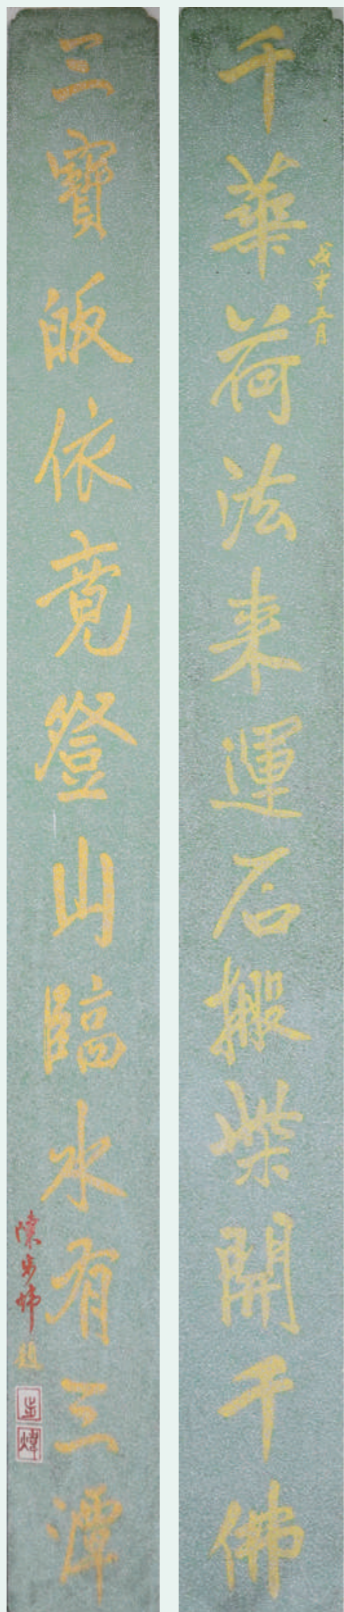 千華荷法来運石搬柴開千佛
戊申五月
三寶皈依竟登山臨水有三潭
陳 題